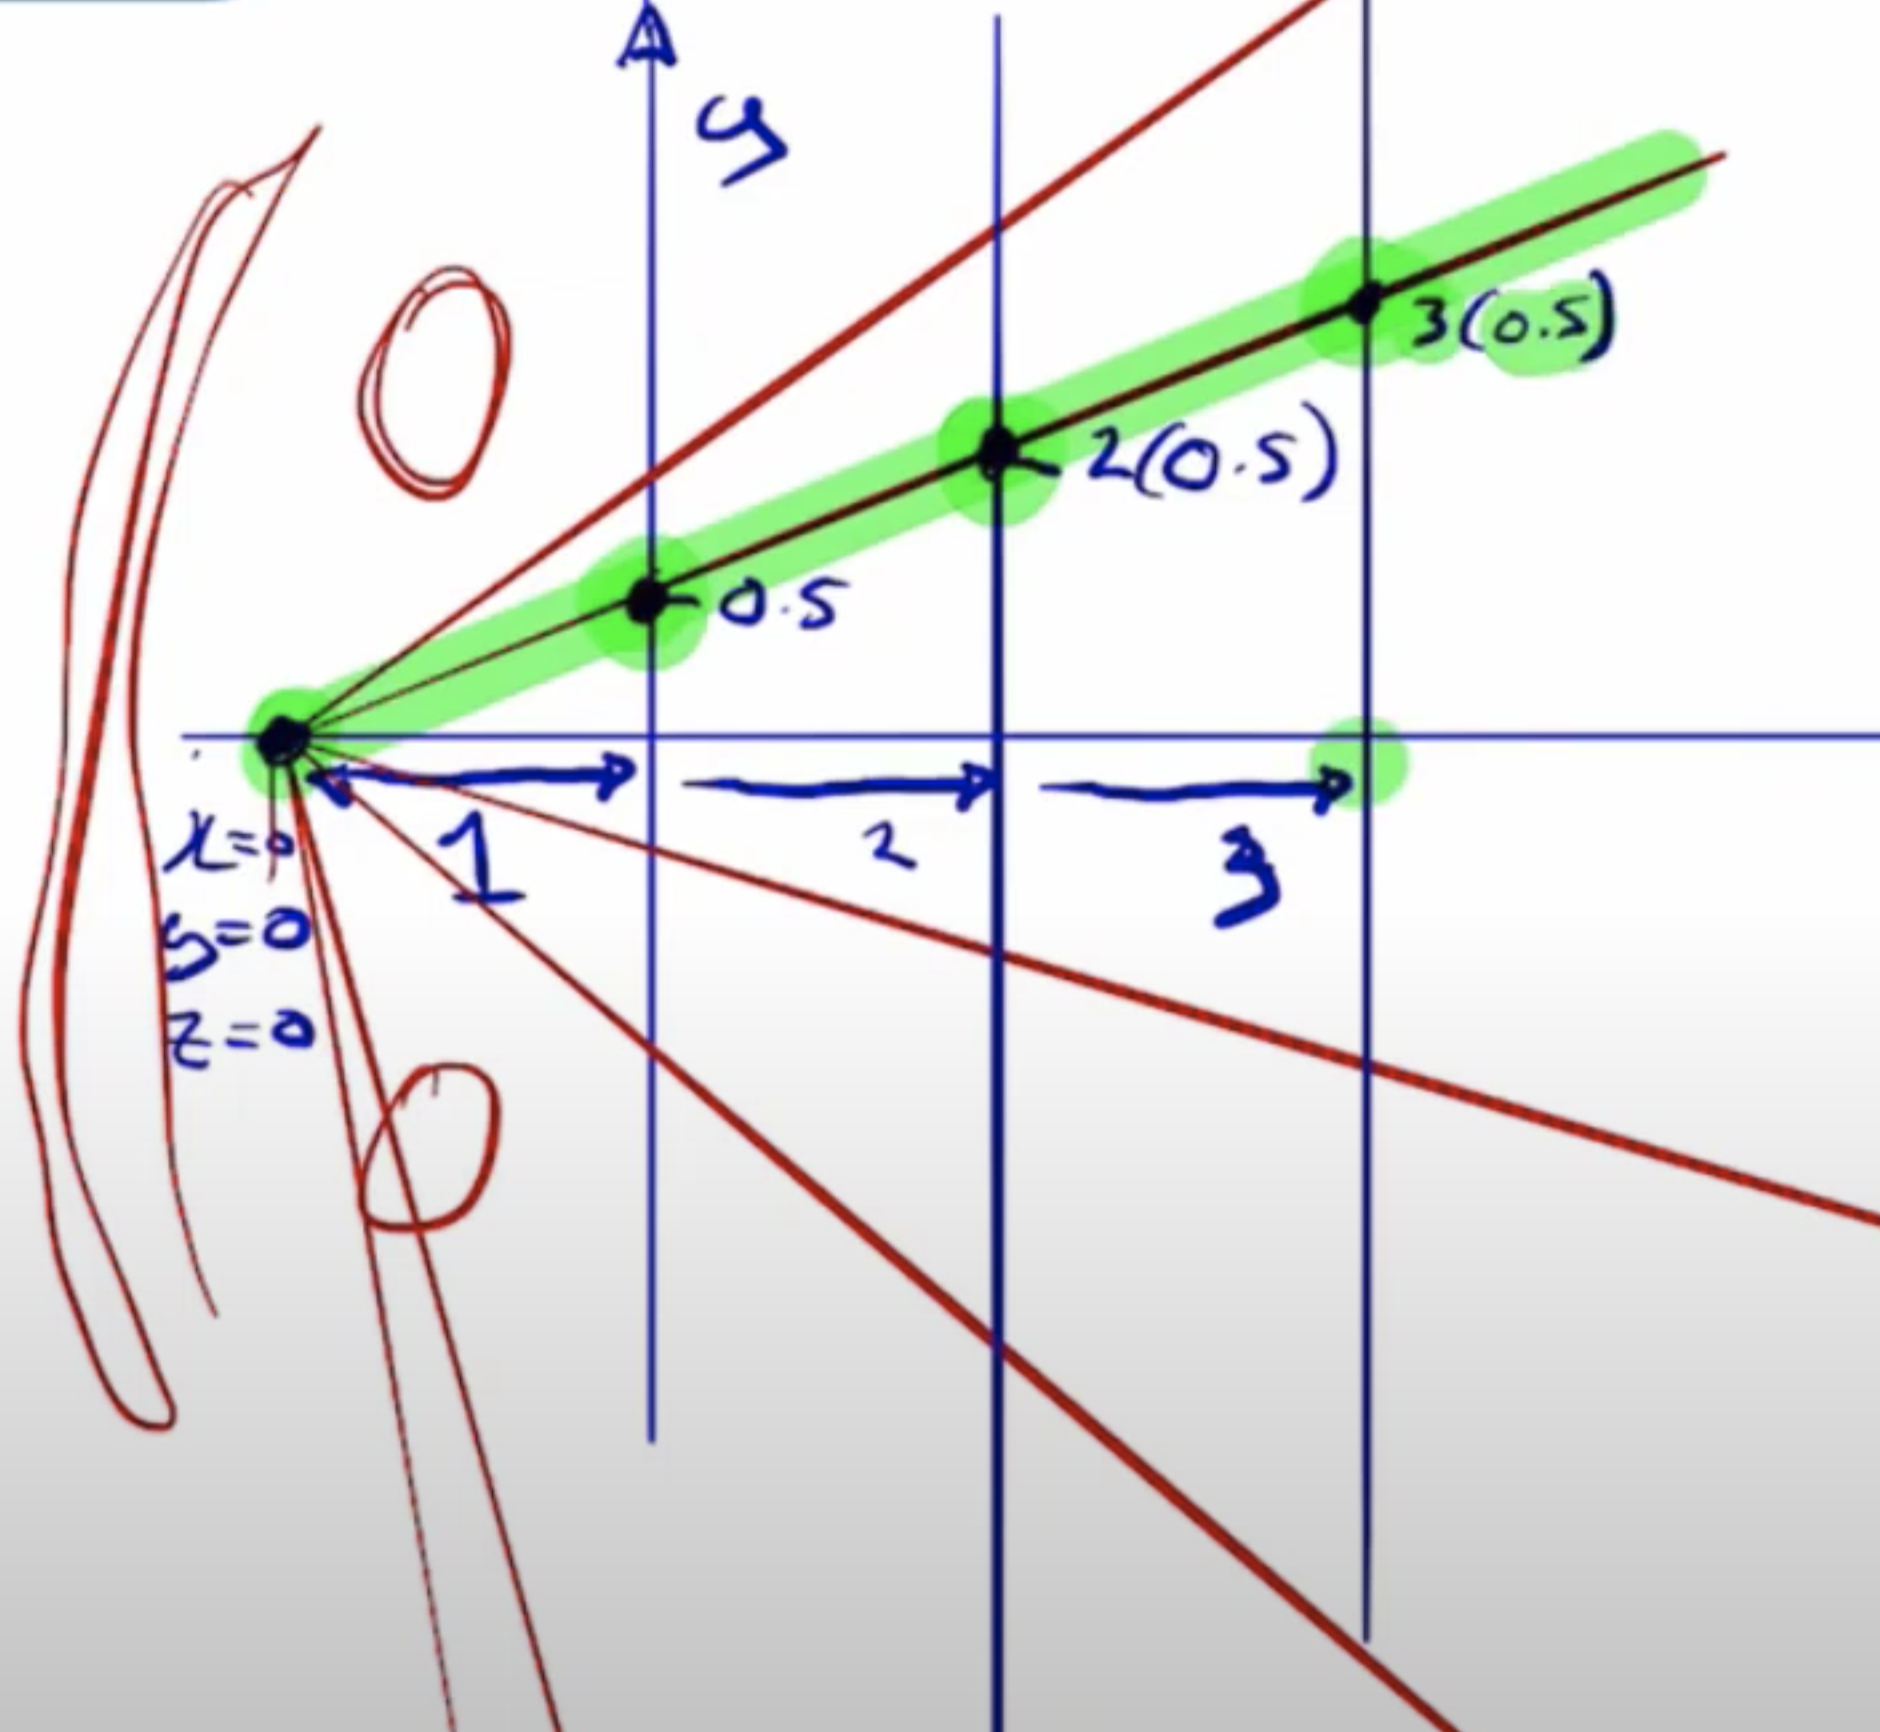 y
3(0.5)
2(0.5)
0.5
1
2
3
x=0
y=0
z=0